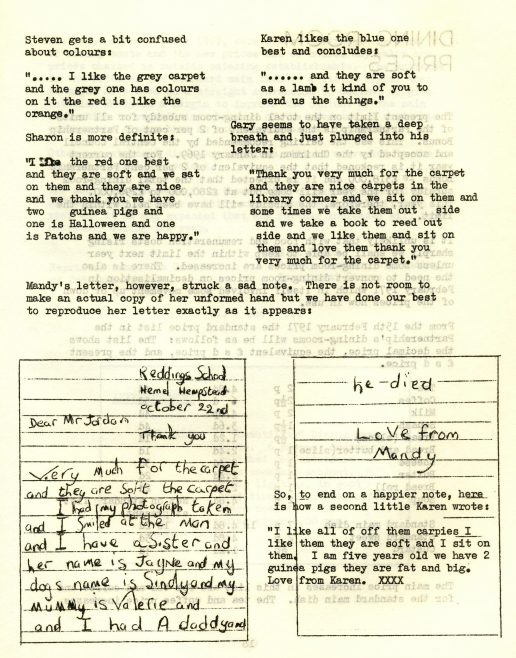 Steven gets a bit confused
about colours:
"..... I like the grey carpet
and the grey one has colours
on it the red is like the
orange."
Sharon is more definite:
"I like the red one best
and they are soft and we sat
on them and they are nice
and we thank you we have
two guinea pigs and
one is Halloween and one
is Patchs and we are happy."
Karen likes the blue one
best and concludes:
"...... and they are soft
as a lamb it kind of you to
send us the things."
Gary seems to have taken a deep
breath and just plunged into his
letter:
"Thank you very much for the carpet
and they are nice carpets in the
library corner and we sit on them and
some times we take them out side
and we take a book to reed out
side and we like them and sit on
them and love them thank you
very much for the carpet."
Mandy's letter, however, struck a sad note. There is not room to
make an actual copy of her unformed hand but we have done our best
to reproduce her letter exactly as it appears:
Reddings School
Hemel Hempstead
october 22nd
Dear Mr Jordan
Thank you
Very much for the carpet
and they are soft the carpet
I had my photograph taken
and I Smiled at the Man
and I have a Sister and
her name is Jayne and my
dogs name is Sindy and my
Mummy is Valerie and
and I had A daddy and
he-died
Love from
Mandy
So, to end on a happier note, here
is how a second little Karen wrote:
"I like all of off them carpies I
like them they are soft and I sit on
them. I am five years old we have 2
guinea pigs they are fat and big.
Love from Karen. XXXX